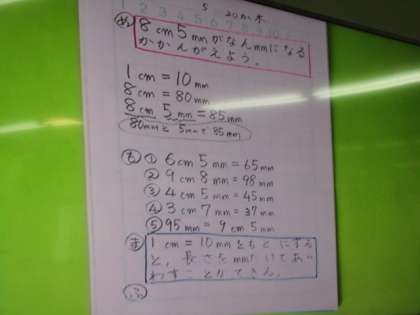 5 20m
1 2 3 4 5 6 7 8 9 10
め 8cm5mmがなんmmになる
かかんがえよう。
1cm=10mm
8cm=80mm
8cm 5mm=85mm
80mmと5mmで85mm
も ① 6cm 5mm=65mm
② 9cm 8mm=98mm
③ 4cm 5mm=45mm
④ 3cm 7mm=37mm
⑤ 95mm=9cm 5mm
ま 1cm=10mmをもとにする
と、長さをmmだけであら
わすことができる。
ふ